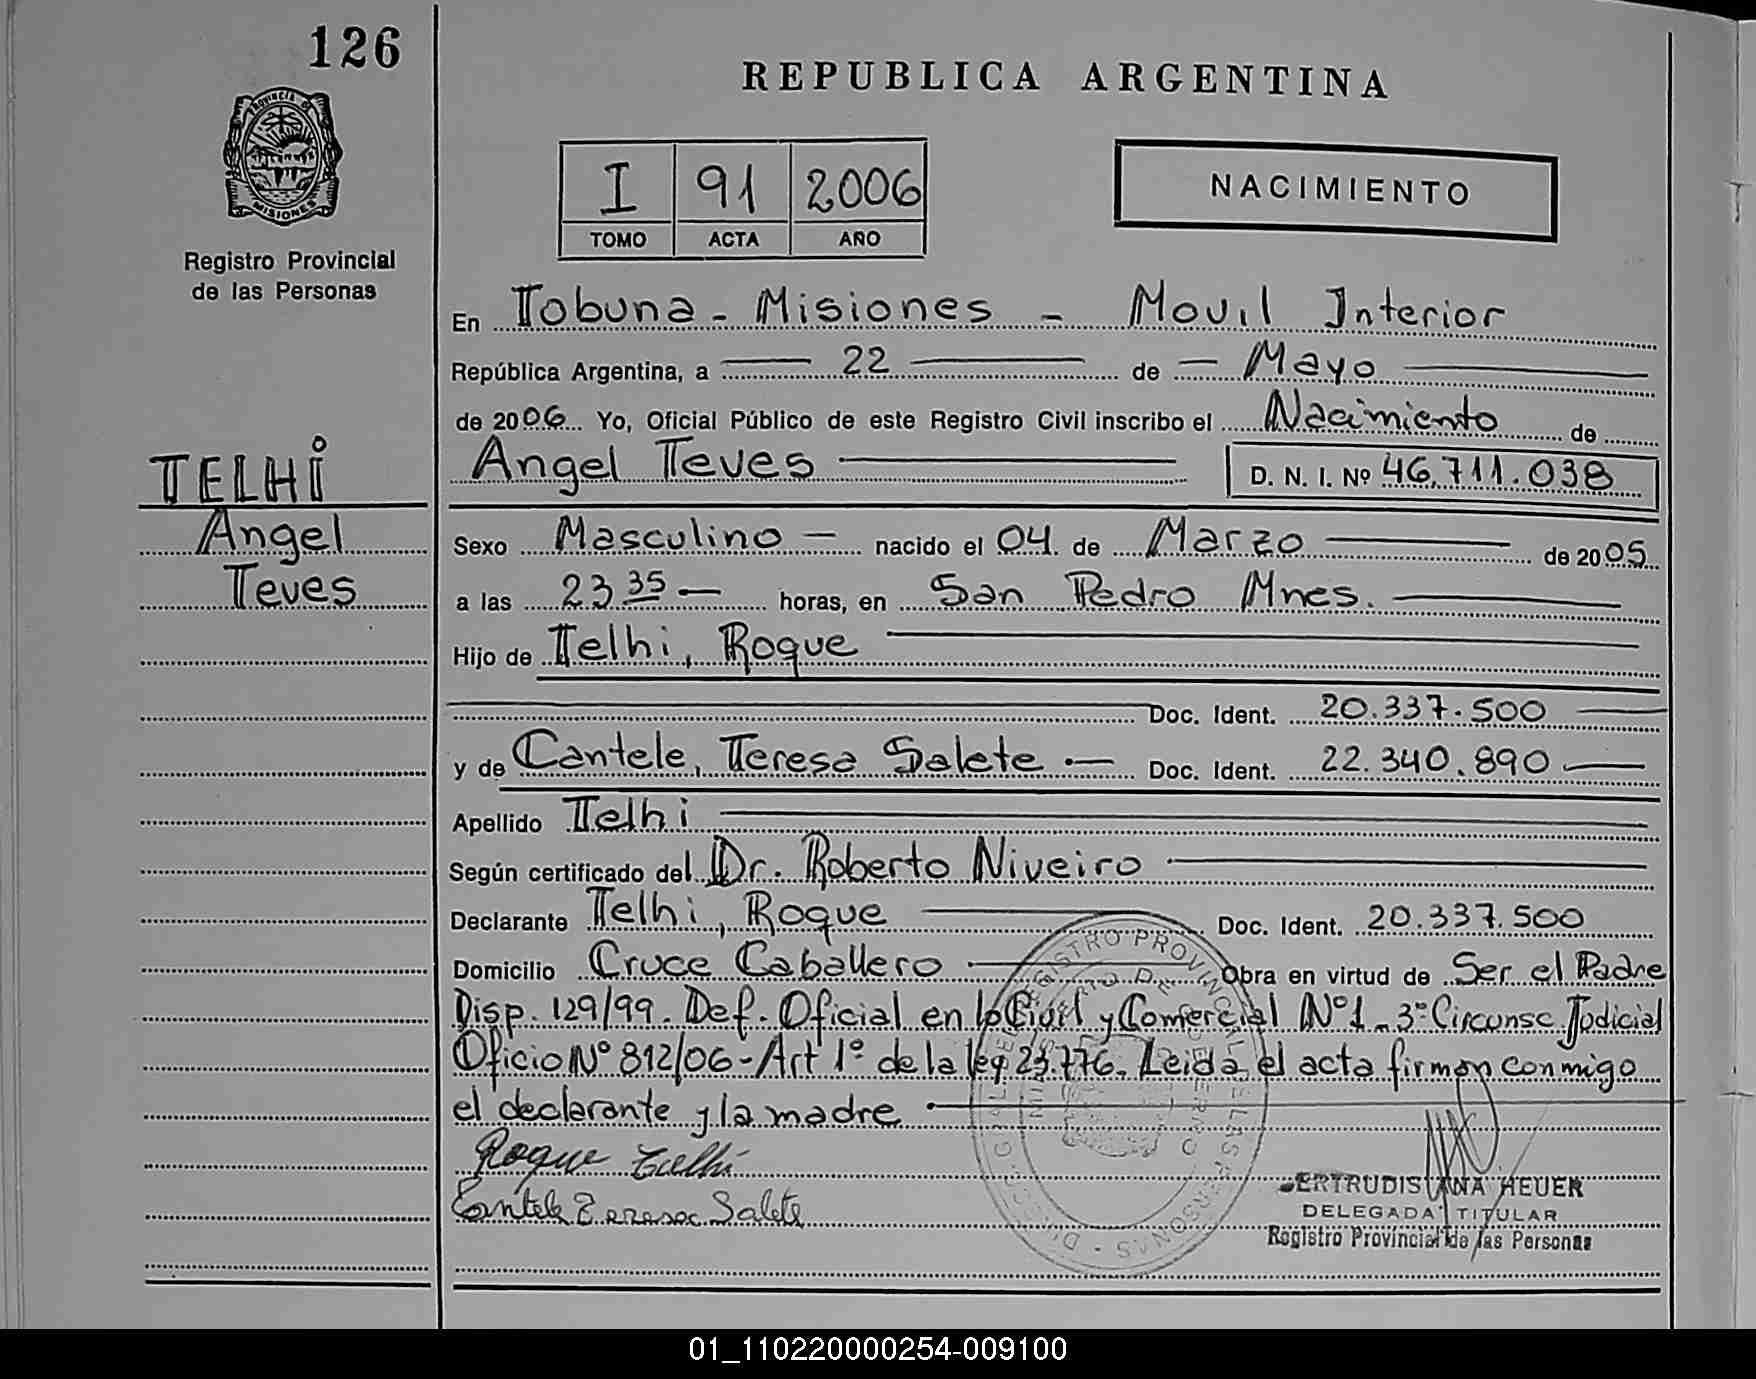 126
REPUBLICA ARGENTINA
PROVINCIA D MISIONES
Registro Provincial
de las Personas
I 91 2006
TOMO ACTA AÑO
NACIMIENTO
En Tobuna - Misiones - Movil Interior
República Argentina, a 22 de Mayo
de 2006 Yo, Oficial Público de este Registro Civil inscribo el Nacimiento de
Angel Teves D. N. I. Nº 46.711.038
TELHI
Angel
Teves
Sexo Masculino nacido el 04 de Marzo de 2005
a las 23 35 horas, en San Pedro Mnes.
Hijo de Telhi, Roque
Doc. Ident. 20.337.500
y de Cantele, Teresa Salete Doc. Ident. 22.340.890
Apellido Telhi
Según certificado del Dr. Roberto Niveiro
Declarante Telhi, Roque Doc. Ident. 20.337.500
Domicilio Cruce Caballero Obra en virtud de Ser el Padre
Disp. 129/99. Def. Oficial en lo Civil y Comercial Nº1 - 3º Circunsc. Judicial
Oficio Nº 812/06 - Art 1º de la ley 23.776. Leida el acta firman conmigo
el declarante y la madre
Roque Telhi
Cantele Teresa Salete
REGISTRO PROVINCIAL DE LAS PERSONAS
ERTRUDIS ANA HEUER
DELEGADA TITULAR
Registro Provincial de las Personas
01_110220000254-009100